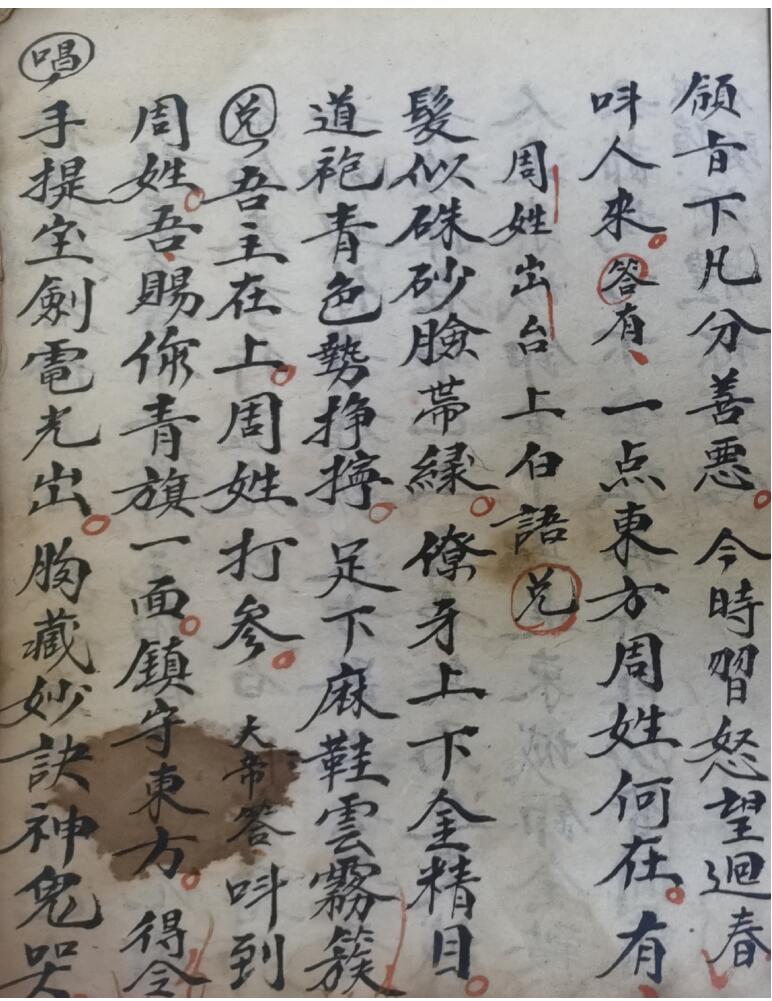 領旨下凡分善惡。今時習怒望迴春
呌人來。答有、一点東方周姓何在。有、
周姓出台上白語兑
髮似硃砂臉帶緑。僚牙上下金精目。
道袍青色勢掙擰。足下麻鞋雲霧簇
兑吾主在上。周姓打參。大帝答呌到
周姓。吾、賜你青旗一面。鎮守東方。得令
唱手提宝劍電光出。胸藏妙訣神鬼哭